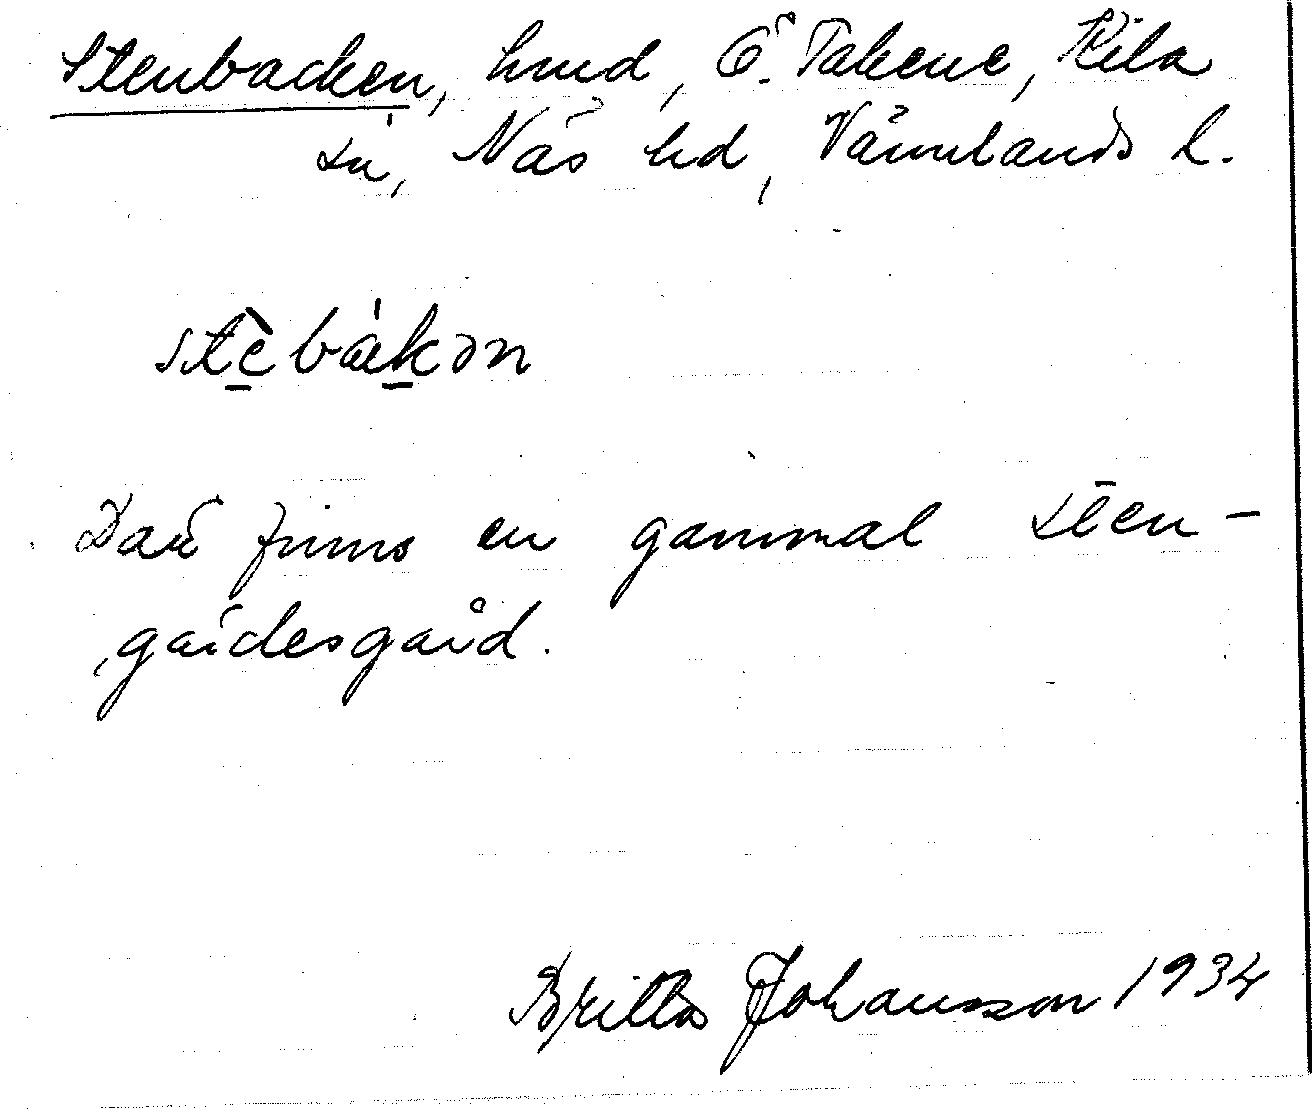 Stenbacken, hmd, Ö. Takene, Kila
sn, Näs hd, Värmlands l.
stèbákən
Där finns en gammal sten-
gärdesgård.
Britta Johansson 1934